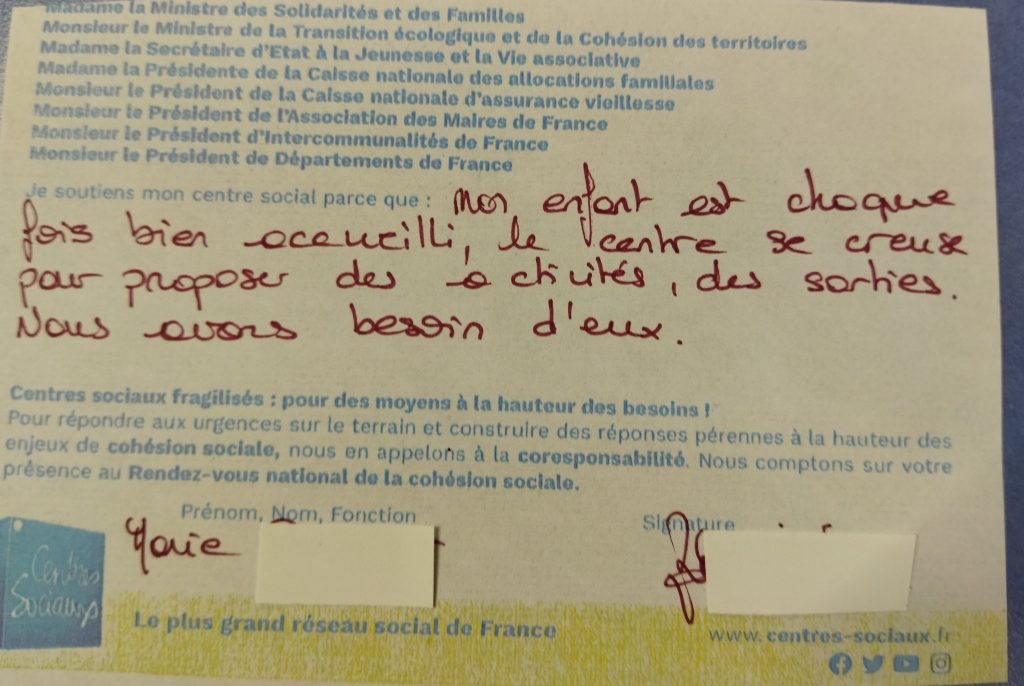 Madame la Ministre des Solidarités et des Familles
Monsieur le Ministre de la Transition écologique et de la Cohésion des territoires
Madame la Secrétaire d'Etat à la Jeunesse et la Vie associative
Madame la Présidente de la Caisse nationale des allocations familiales
Monsieur le Président de la Caisse nationale d'assurance vieillesse
Monsieur le Président de l'Association des Maires de France
Monsieur le Président d'Intercommunalités de France
Monsieur le Président de Départements de France
Je soutiens mon centre social parce que : mon enfant est chaque
fois bien accueilli, le centre se creuse
pour proposer des activités, des sorties.
Nous avons besoin d'eux.
Centres sociaux fragilisés : pour des moyens à la hauteur des besoins !
Pour répondre aux urgences sur le terrain et construire des réponses pérennes à la hauteur des
enjeux de cohésion sociale, nous en appelons à la coresponsabilité. Nous comptons sur votre
présence au Rendez-vous national de la cohésion sociale.
Prénom, Nom, Fonction
Signature
Marie
Centres
Sociaux
Le plus grand réseau social de France
www.centres-sociaux.fr